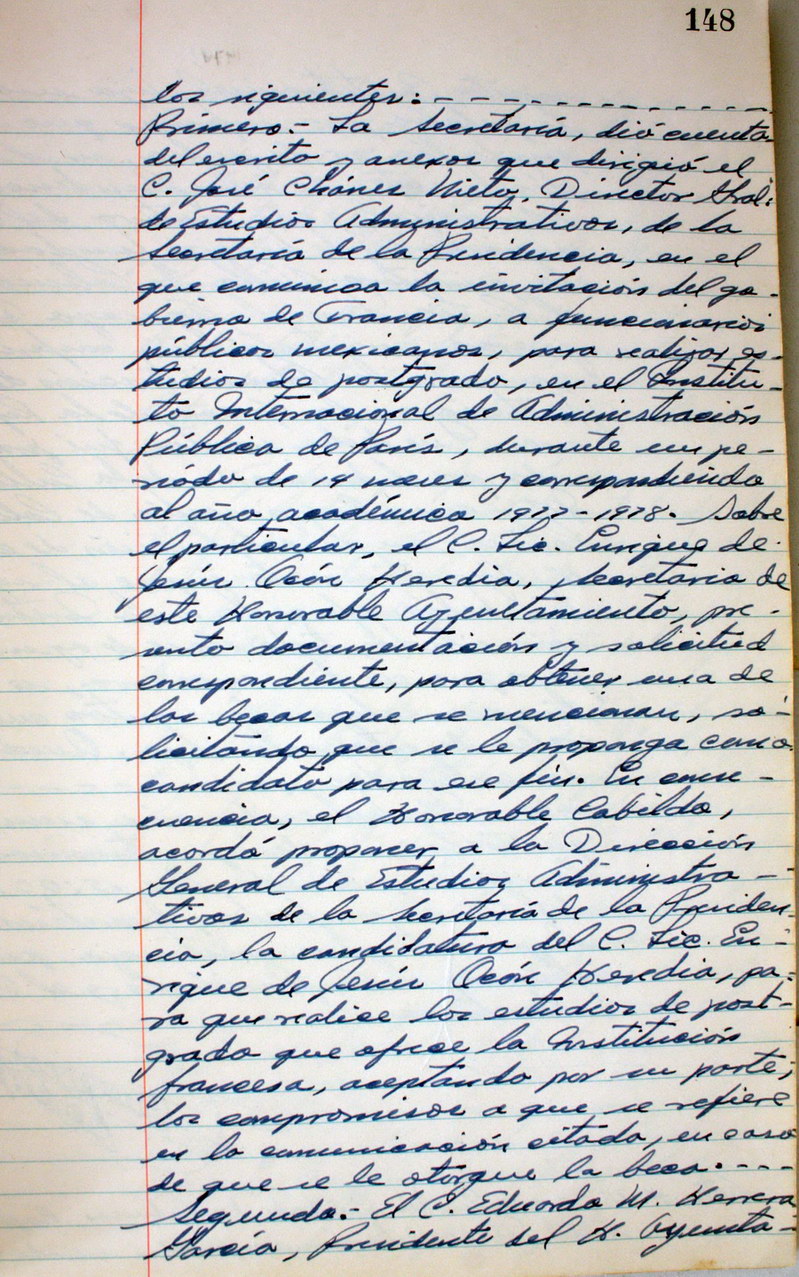 148
los siguientes: - - - - - - - - - - - -
Primero.- La Secretaría, dió cuenta
del escrito y anexos que dirigió el
C. José Chánes Nieto, Director Gral.
de Estudios Administrativos, de la
Secretaría de la Presidencia, en el
que comunica la invitación del go-
bierno de Francia, a funcionarios
públicos mexicanos, para realizar es-
tudios de postgrado, en el Institu-
to Internacional de Administración
Pública de París, durante un pe-
riódo de 14 meses y correspondiendo
al año académico 1977-1978. Sobre
el particular, el C. Lic. Enrique de
Jesús Ocón Heredia, Secretario de
este Honorable Ayuntamiento, pre-
sento documentación y solicitud
correspondiente, para obtener una de
las becas que se mencionan, so-
licitando que se le proponga como
candidato para ese fin. En conse-
cuencia, el Honorable Cabildo,
acordó proponer a la Dirección
General de Estudios Administra-
tivos de la Secretaría de la Presiden-
cia, la candidatura del C. Lic. En-
rique de Jesús Ocón Heredia, pa-
ra que realice los estudios de post-
grado que ofrece la Institución
francesa, aceptando por su parte,
los compromisos a que se refiere
en la comunicación citada, en caso
de que se le otorgue la beca. - - -
Segundo.- El C. Eduardo M. Herrera
García, Presidente del H. Ayunta-